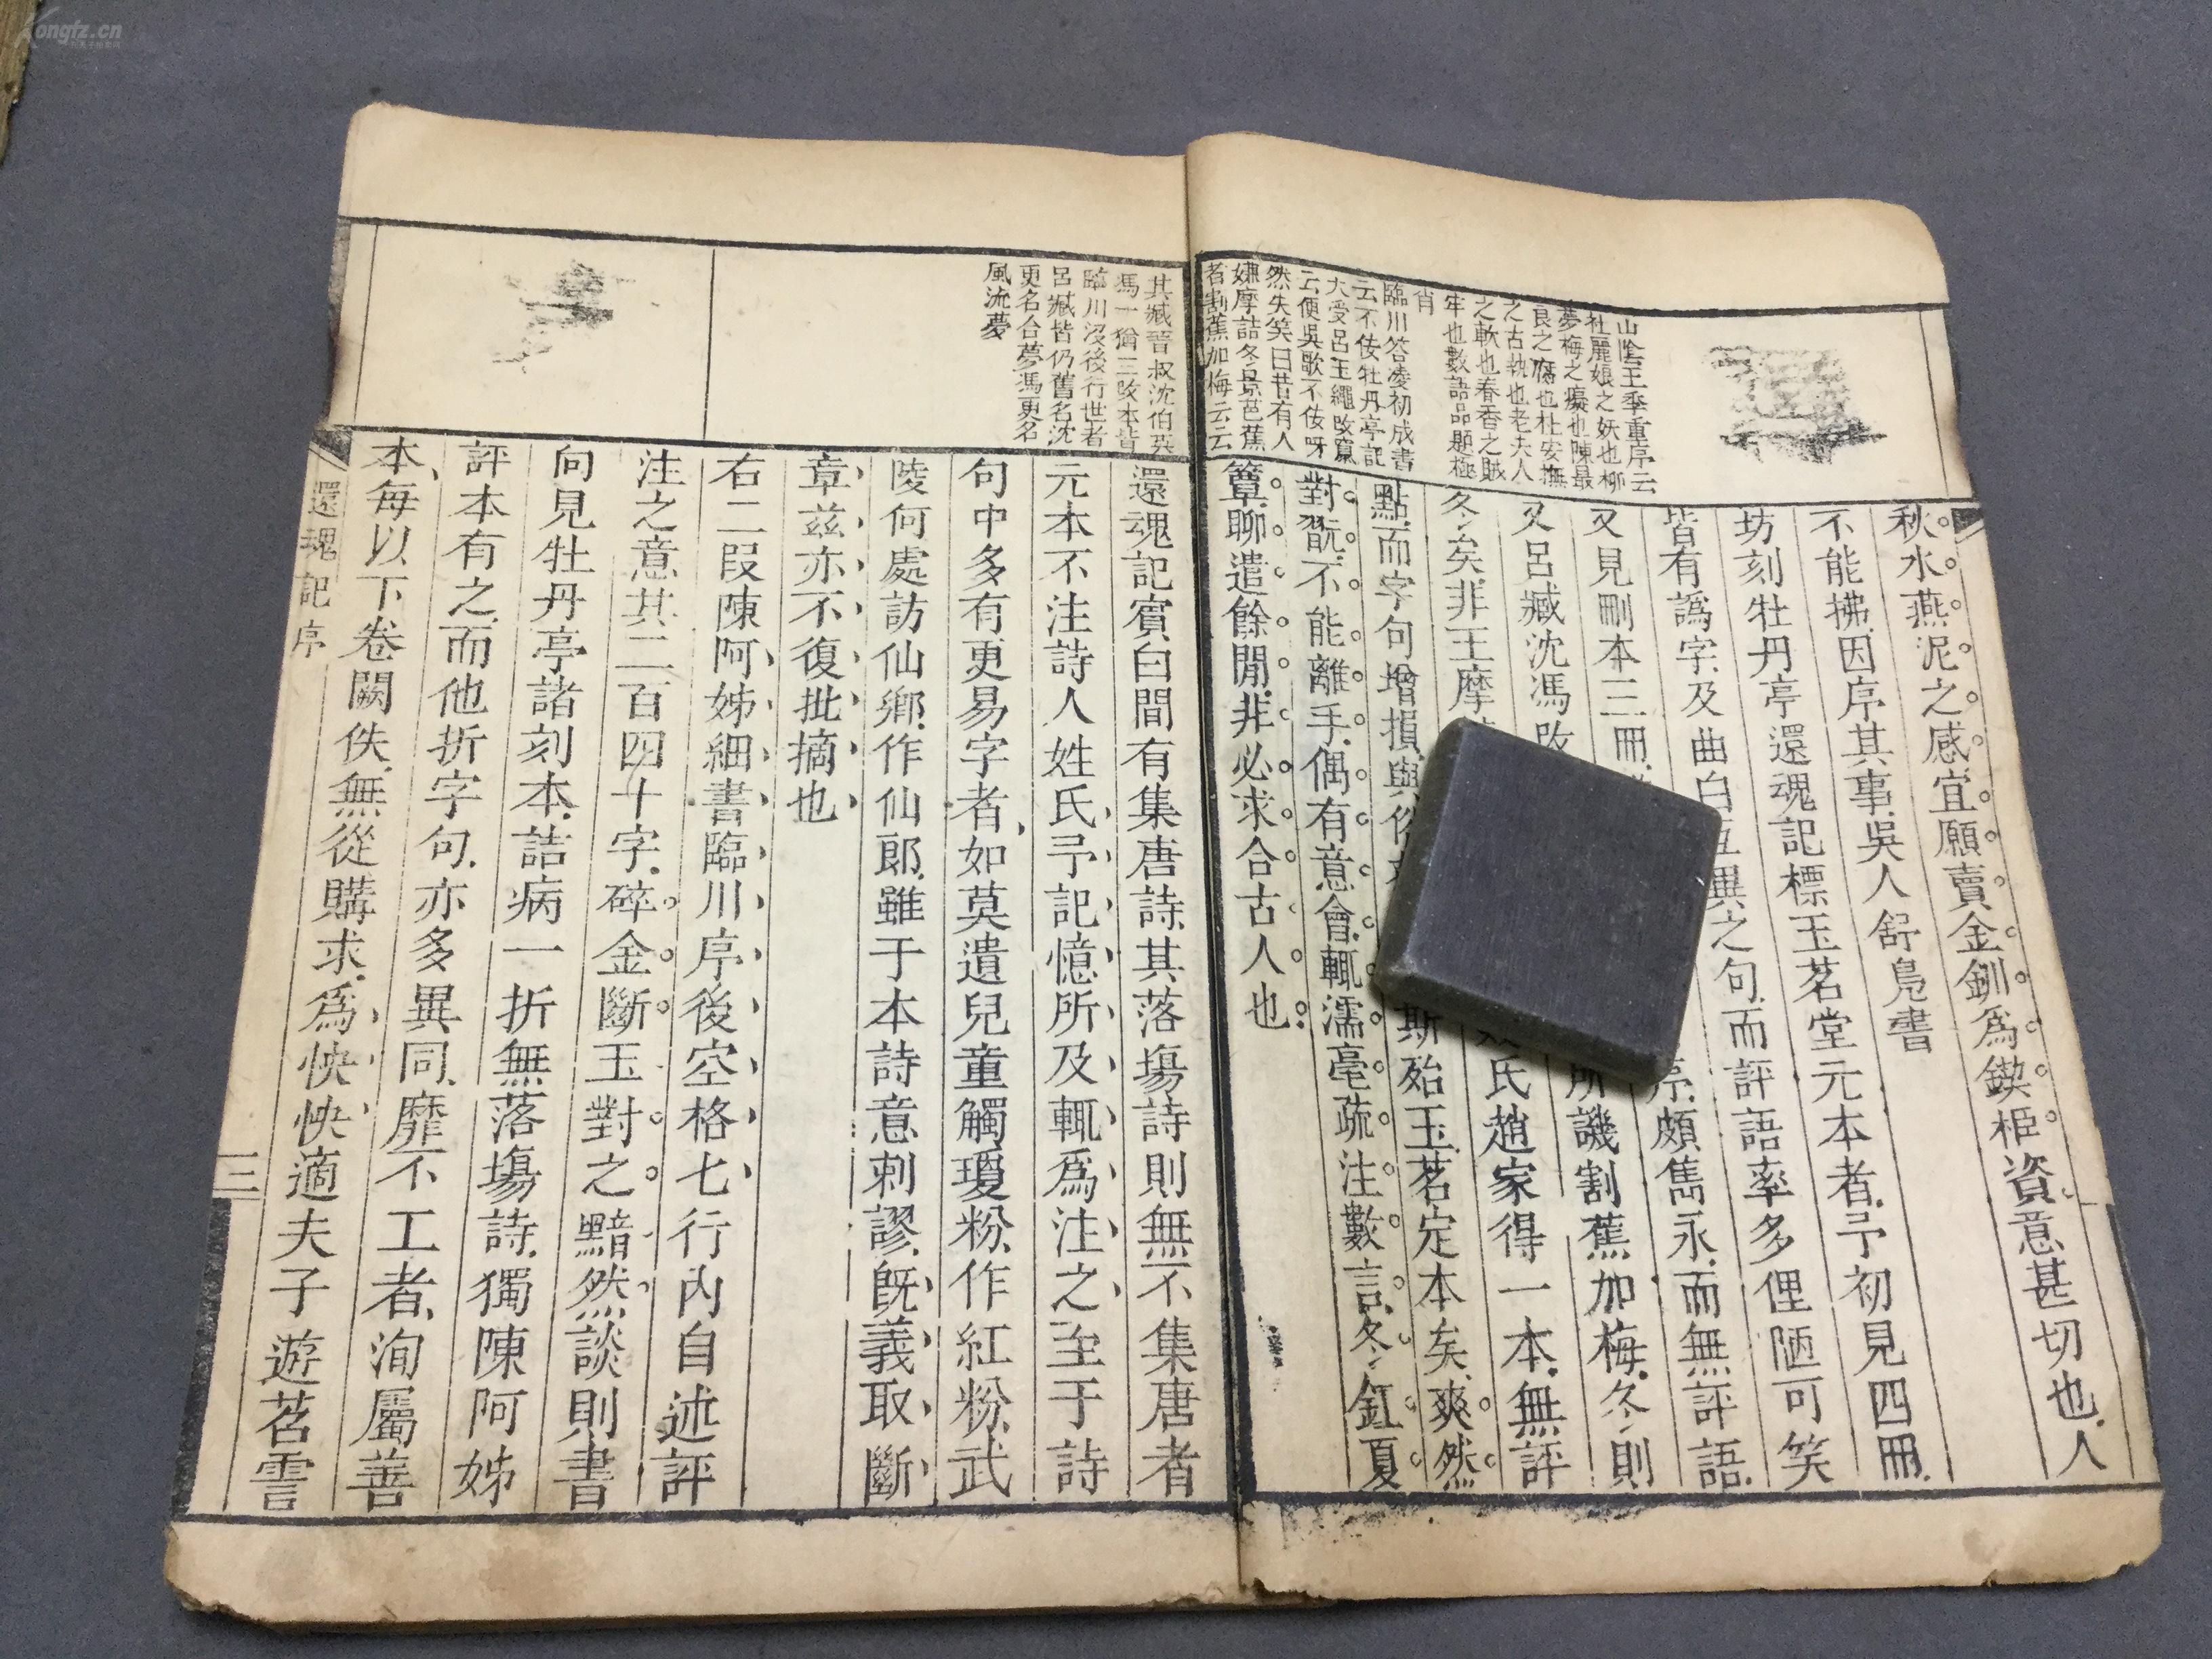 Kongfz.cn
山陰王季重序云
杜麗娘之妖也柳
夢梅之癡也陳最
良之腐也杜安撫
之古執也老夫人
之軟也春香之賊
牢也數語品題極
肖
臨川答凌初成書
云不佞牡丹亭記
大受呂玉繩改竄
云便吳歌不佞呀
然失笑曰昔有人
嫌摩詰冬景芭蕉
者割蕉加梅云云
秋水燕泥之感宜願賣金釧爲鍥柜資意甚切也人
不能拂因序其事吳人舒鳧書
坊刻牡丹亭還魂記標玉茗堂元本者予初見四冊
皆有譌字及曲白互異之句而評語率多俚陋可笑
又見刪本三冊
序頗雋永而無評語
又呂臧沈馮改
所譏割蕉加梅冬則
冬矣非王摩
氏趙家得一本無評
點而字句增損與俗
斯殆玉茗定本矣爽然
對翫不能離手偶有意會輒濡毫疏注數言冬釭夏
簟聊遣餘閒非必求合古人也
其臧晉叔沈伯英
馮一猶三改本皆
臨川沒後行世者
呂臧皆仍舊名沈
更名合夢馮更名
風流夢
還魂記賓白間有集唐詩其落場詩則無不集唐者
元本不注詩人姓氏予記憶所及輒爲注之至于詩
句中多有更易字者如莫遺兒童觸瓊粉作紅粉武
陵何處訪仙鄉作仙郎雖于本詩意刺謬既義取斷
章茲亦不復批摘也
右二段陳阿姊細書臨川序後空格七行內自述評
注之意其二百四十字碎金斷玉對之黯然談則書
向見牡丹亭諸刻本詰病一折無落場詩獨陳阿姊
評本有之而他折字句亦多異同靡不工者洵屬善
本每以下卷闕佚無從購求爲怏怏適夫子遊苕霅
還魂記序
三